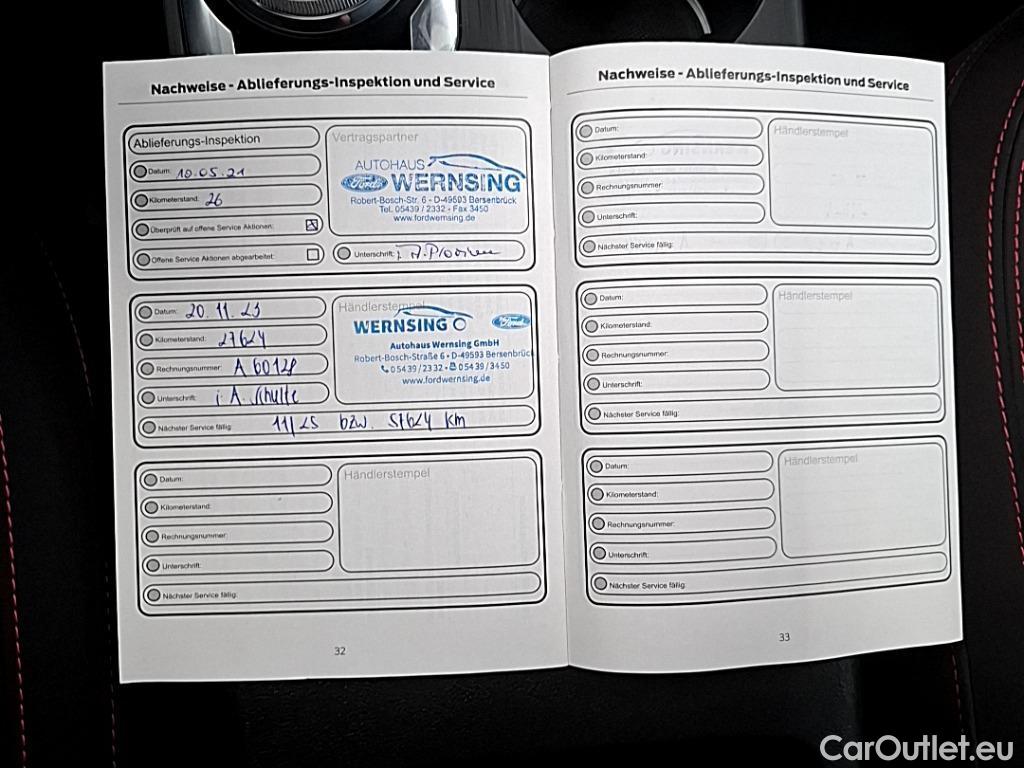 Nachweise - Ablieferungs-Inspektion und Service
Ablieferungs-Inspektion
Datum: 10.05.21
Kilometerstand: 26
Überprüft auf offene Service Aktionen:
Offene Service Aktionen abgearbeitet:
Vertragspartner
AUTOHAUS
Ford WERNSING
Robert-Bosch-Str. 6 - D-49593 Bersenbrück
Tel. 05439 / 2332 - Fax 3450
www.fordwernsing.de
Unterschrift:
Datum: 20.11.23
Kilometerstand: 27624
Rechnungsnummer: A 60128
Unterschrift: i.A. Schulte
Händlerstempel
WERNSING Ford
Autohaus Wernsing GmbH
Robert-Bosch-Straße 6 • D-49593 Bersenbrück
05439/2332 • 05439/3450
www.fordwernsing.de
Nächster Service fällig: 11/25 bzw. 57624 km
Datum:
Kilometerstand:
Rechnungsnummer:
Unterschrift:
Händlerstempel
Nächster Service fällig:
32
Nachweise - Ablieferungs-Inspektion und Service
Datum:
Kilometerstand:
Rechnungsnummer:
Unterschrift:
Händlerstempel
Nächster Service fällig:
Datum:
Kilometerstand:
Rechnungsnummer:
Unterschrift:
Händlerstempel
Nächster Service fällig:
Datum:
Kilometerstand:
Rechnungsnummer:
Unterschrift:
Händlerstempel
Nächster Service fällig:
33
CarOutlet.eu